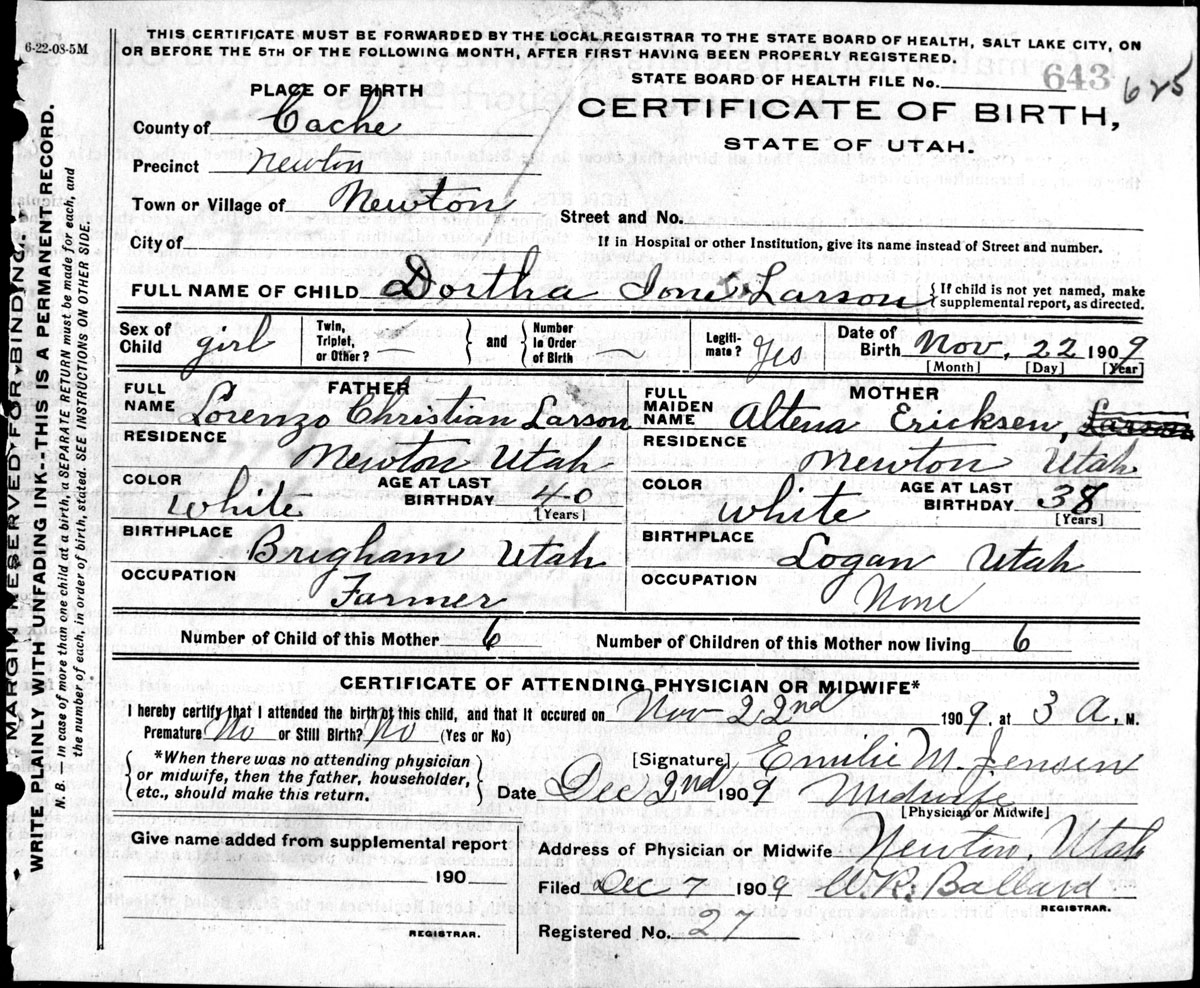 6-22-08-5M
THIS CERTIFICATE MUST BE FORWARDED BY THE LOCAL REGISTRAR TO THE STATE BOARD OF HEALTH, SALT LAKE CITY, ON
OR BEFORE THE 5TH OF THE FOLLOWING MONTH, AFTER FIRST HAVING BEEN PROPERLY REGISTERED.
STATE BOARD OF HEALTH FILE No. 643 625
PLACE OF BIRTH
CERTIFICATE OF BIRTH,
STATE OF UTAH.
County of Cache
Precinct Newton
Town or Village of Newton
Street and No.
City of
If in Hospital or other Institution, give its name instead of Street and number.
FULL NAME OF CHILD Dortha Ione Larson { If child is not yet named, make
supplemental report, as directed.
Sex of Child girl Twin, Triplet, or Other? — } and { Number in Order of Birth — Legiti-mate? Yes Date of Birth Nov. 22 1909
[Month] [Day] [Year]
FATHER
FULL NAME Lorenzo Christian Larson
RESIDENCE
Newton Utah
COLOR White AGE AT LAST BIRTHDAY 40
[Years]
BIRTHPLACE Brigham Utah
OCCUPATION
Farmer
MOTHER
FULL MAIDEN NAME Altena Ericksen, Larson
RESIDENCE
Newton Utah
COLOR white AGE AT LAST BIRTHDAY 38
[Years]
BIRTHPLACE Logan Utah
OCCUPATION
None
Number of Child of this Mother 6 Number of Children of this Mother now living 6
CERTIFICATE OF ATTENDING PHYSICIAN OR MIDWIFE*
I hereby certify that I attended the birth of this child, and that it occured on Nov 22nd 1909, at 3 A. M.
Premature No or Still Birth? No (Yes or No)
{ *When there was no attending physician
or midwife, then the father, householder,
etc., should make this return. }
[Signature] Emilie M. Jensen
Date Dec 2nd 1909 Midwife
[Physician or Midwife]
Give name added from supplemental report
190
REGISTRAR.
Address of Physician or Midwife Newton, Utah
Filed Dec 7 1909 W.R. Ballard
REGISTRAR.
Registered No. 27
MARGIN RESERVED FOR BINDING.
WRITE PLAINLY WITH UNFADING INK--THIS IS A PERMANENT RECORD.
N. B.—In case of more than one child at a birth, a SEPARATE RETURN must be made for each, and
the number of each, in order of birth, stated. SEE INSTRUCTIONS ON OTHER SIDE.